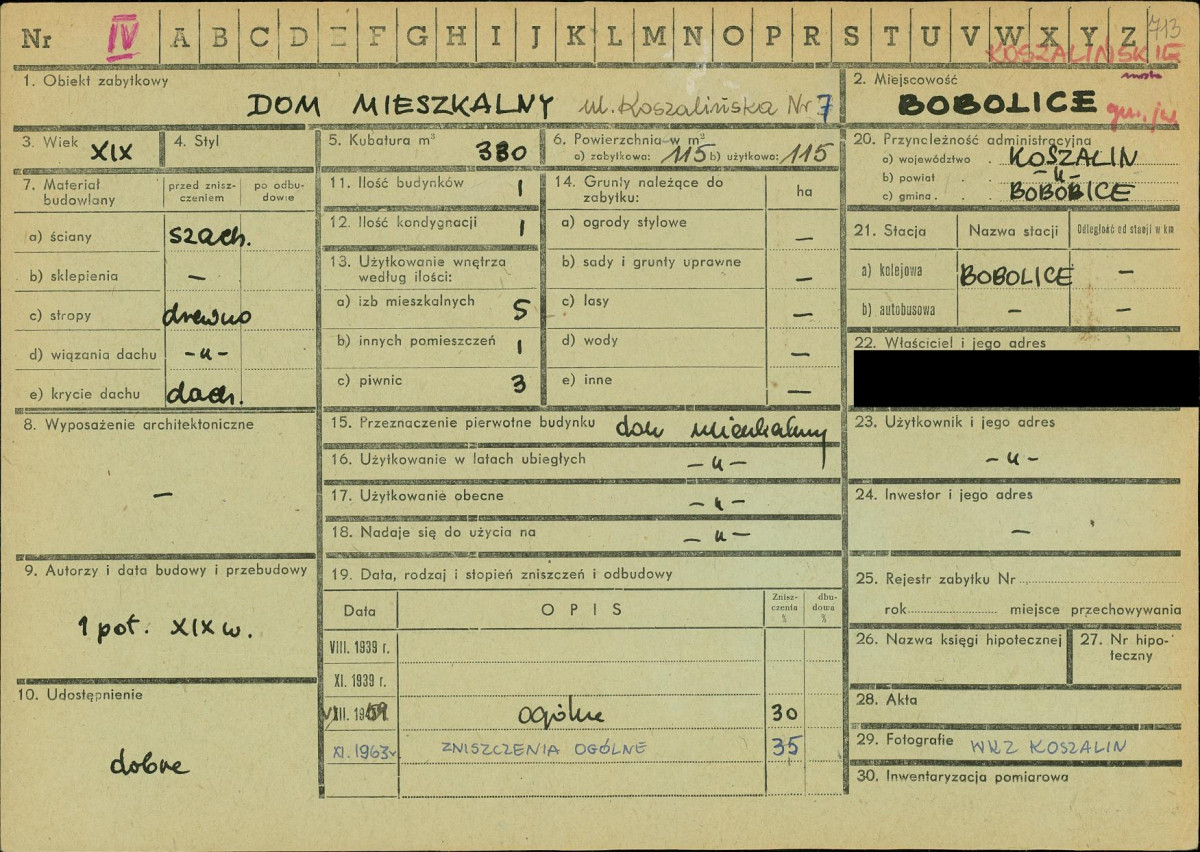 Nr IV A B C D E F G H I J K L M N O P R S T U V W X Y Z 713
KOSZALIŃSKIE
1. Obiekt zabytkowy
DOM MIESZKALNY ul. Koszalińska Nr 7
2. Miejscowość
BOBOLICE
3. Wiek XIX
4. Styl
5. Kubatura m³ 330
6. Powierzchnia w m²
a) zabytkowa: 115 b) użytkowa: 115
7. Materiał budowlany
przed zniszczeniem
po odbudowie
a) ściany szach.
b) sklepienia –
c) stropy drewno
d) wiązania dachu -„-
e) krycie dachu dach.
8. Wyposażenie architektoniczne
–
9. Autorzy i data budowy i przebudowy
1 poł. XIX w.
10. Udostępnienie
dobre
11. Ilość budynków 1
12. Ilość kondygnacji 1
13. Użytkowanie wnętrza według ilości:
a) izb mieszkalnych 5
b) innych pomieszczeń 1
c) piwnic 3
14. Grunty należące do zabytku: ha
a) ogrody stylowe –
b) sady i grunty uprawne –
c) lasy –
d) wody –
e) inne –
15. Przeznaczenie pierwotne budynku dom mieszkalny
16. Użytkowanie w latach ubiegłych -„-
17. Użytkowanie obecne -„-
18. Nadaje się do użycia na -„-
19. Data, rodzaj i stopień zniszczeń i odbudowy
Data OPIS Zniszczenia % dbudowa %
VIII. 1939 r.
XI. 1939 r.
59 ogólne 30
XI. 1963 r. ZNISZCZENIA OGÓLNE 35
20. Przynależność administracyjna
a) województwo . KOSZALIN
b) powiat . . -„-
c) gmina . . . BOBOLICE
21. Stacja Nazwa stacji Odległość od stacji w km
a) kolejowa BOBOLICE –
b) autobusowa – –
22. Właściciel i jego adres
23. Użytkownik i jego adres
-„-
24. Inwestor i jego adres
–
25. Rejestr zabytku Nr
rok miejsce przechowywania
26. Nazwa księgi hipotecznej
27. Nr hipoteczny
28. Akta
29. Fotografie WKZ KOSZALIN
30. Inwentaryzacja pomiarowa